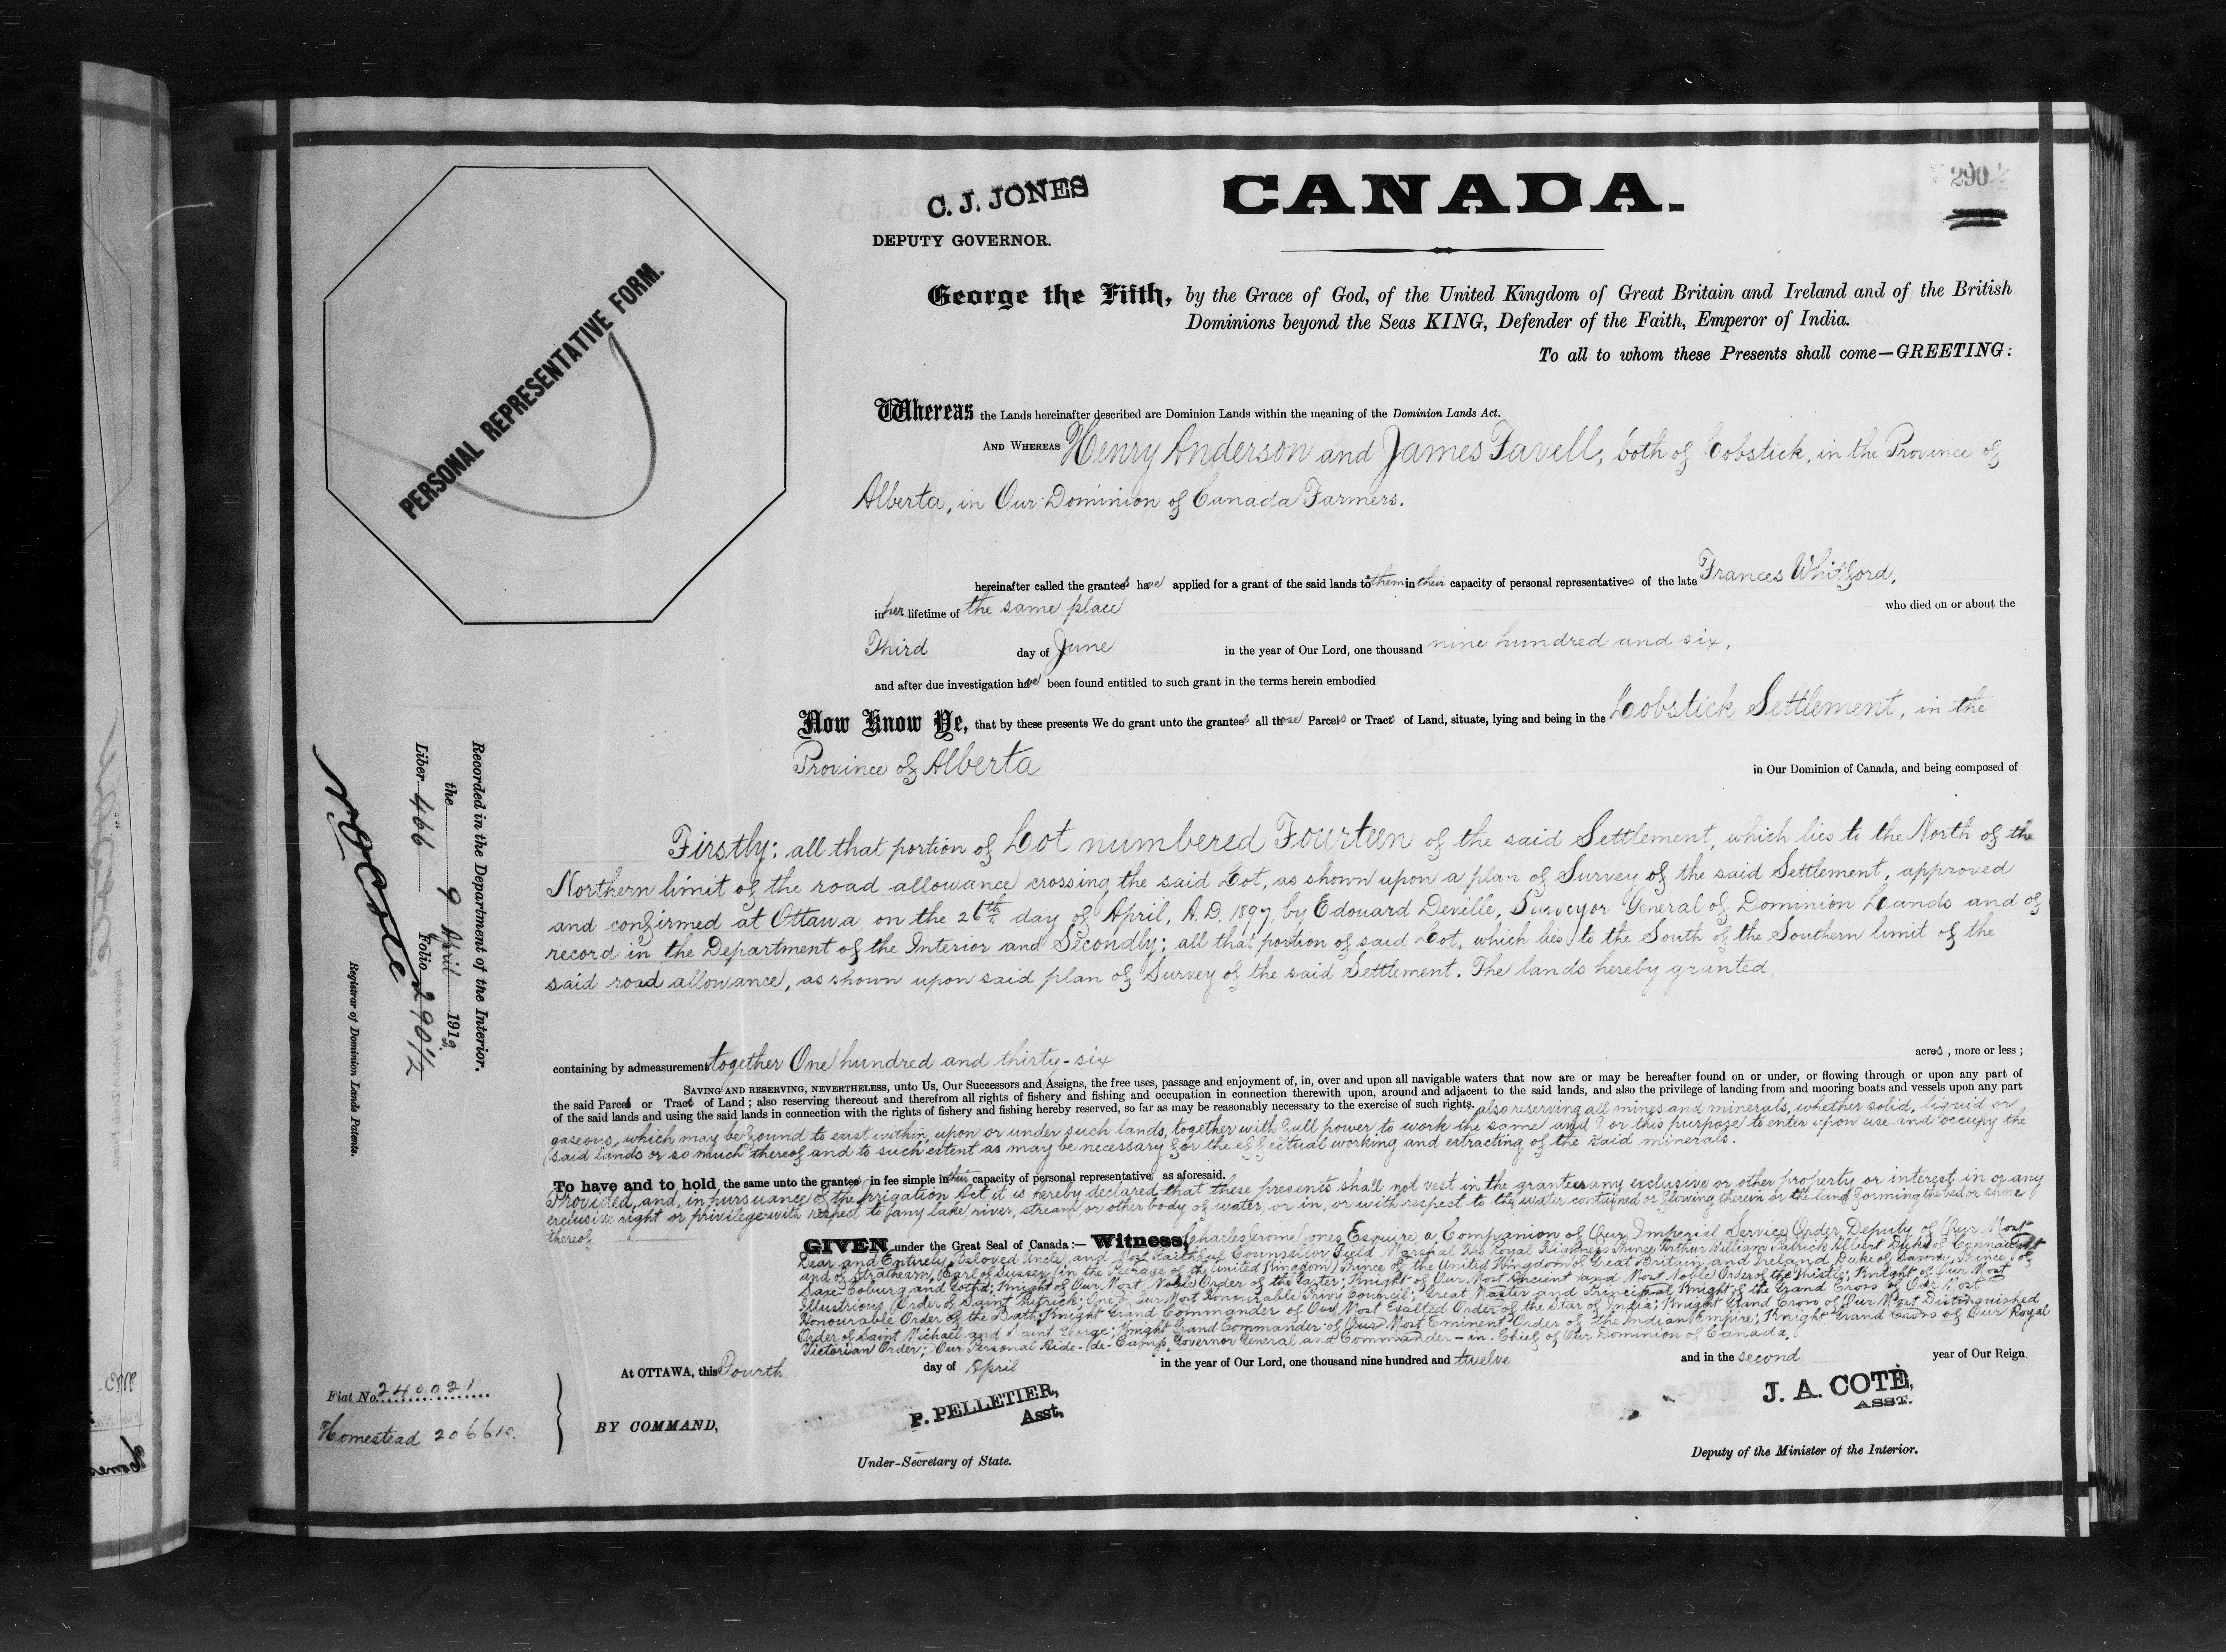 C. J. JONES
DEPUTY GOVERNOR.
CANADA.
290
PERSONAL REPRESENTATIVE FORM.
George the Fifth, by the Grace of God, of the United Kingdom of Great Britain and Ireland and of the British
Dominions beyond the Seas KING, Defender of the Faith, Emperor of India.
To all to whom these Presents shall come—GREETING:
Whereas the Lands hereinafter described are Dominion Lands within the meaning of the Dominion Lands Act.
AND WHEREAS Henry Anderson and James Favell, both of Lobstick, in the Province of
Alberta, in Our Dominion of Canada Farmers.
hereinafter called the grantees have applied for a grant of the said lands to them in their capacity of personal representatives of the late Frances Whitford,
in her lifetime of the same place who died on or about the
Third day of June in the year of Our Lord, one thousand nine hundred and six,
and after due investigation have been found entitled to such grant in the terms herein embodied
Now Know Ye, that by these presents We do grant unto the grantees all those Parcels or Tracts of Land, situate, lying and being in the Lobstick Settlement, in the
Province of Alberta in Our Dominion of Canada, and being composed of
Firstly: all that portion of Lot numbered Fourteen of the said Settlement, which lies to the North of the
Northern limit of the road allowance crossing the said Lot, as shown upon a plan of Survey of the said Settlement, approved
and confirmed at Ottawa on the 26th day of April, A.D. 1897, by Edouard Deville, Surveyor General of Dominion Lands and of
record in the Department of the Interior and Secondly; all that portion of said Lot, which lies to the South of the Southern limit of the
said road allowance, as shown upon said plan of Survey of the said Settlement. The lands hereby granted,
containing by admeasurement together One hundred and thirty-six acres, more or less;
SAVING AND RESERVING, NEVERTHELESS, unto Us, Our Successors and Assigns, the free uses, passage and enjoyment of, in, over and upon all navigable waters that now are or may be hereafter found on or under, or flowing through or upon any part of
the said Parcels or Tracts of Land; also reserving thereout and therefrom all rights of fishery and fishing and occupation in connection therewith upon, around and adjacent to the said lands, and also the privilege of landing from and mooring boats and vessels upon any part
of the said lands and using the said lands in connection with the rights of fishery and fishing hereby reserved, so far as may be reasonably necessary to the exercise of such rights, also reserving all mines and minerals, whether solid, liquid or
gaseous, which may be found to exist within, upon or under such lands, together with full power to work the same and for this purpose to enter upon use and occupy the
said lands or so much thereof and to such extent as may be necessary for the effectual working and extracting of the said minerals.
To have and to hold the same unto the grantees in fee simple in their capacity of personal representative as aforesaid.
Provided, and, in pursuance of the Irrigation Act it is hereby declared that these presents shall not vest in the grantees any exclusive or other property or interest in or any
exclusive right or privilege with respect to any lake, river, stream, or other body of water, or in, or with respect to the water contained or flowing therein or the land forming the bed or shore
thereof
GIVEN under the Great Seal of Canada:— Witness, Charles Jerome Jones Esquire, a Companion of Our Imperial Service Order, Deputy of Our Most
Dear and Entirely Beloved Uncle, and Most Faithful Counsellor Field Marshal His Royal Highness Prince Arthur William Patrick Albert Duke of Connaught
and of Strathearn, Earl of Sussex (in the Peerage of the United Kingdom) Prince of the United Kingdom of Great Britain and Ireland, Duke of Saxony, Prince of
Saxe-Coburg and Gotha; Knight of Our Most Noble Order of the Garter; Knight of Our Most Ancient and Most Noble Order of the Thistle; Knight of Our Most
Illustrious Order of Saint Patrick; One of Our Most Honourable Privy Council; Great Master and Principal Knight of the Grand Cross of Our Most
Honourable Order of the Bath; Knight Grand Commander of Our Most Exalted Order of the Star of India; Knight Grand Cross of Our Most Distinguished
Order of Saint Michael and Saint George; Knight Grand Commander of Our Most Eminent Order of the Indian Empire; Knight Grand Cross of Our Royal
Victorian Order; Our Personal Aide-de-Camp, Governor General and Commander-in-Chief of Our Dominion of Canada,
At OTTAWA, this Fourth day of April in the year of Our Lord, one thousand nine hundred and twelve and in the second year of Our Reign
BY COMMAND,
P. PELLETIER,
Asst,
Under-Secretary of State.
J. A. COTÉ,
ASST.
Deputy of the Minister of the Interior.
Recorded in the Department of the Interior.
the 9 April 1912
Liber 466 Folio 290 1/2
N O Coté
Registrar of Dominion Lands Patents.
Fiat No. 240021
Homestead 206610.